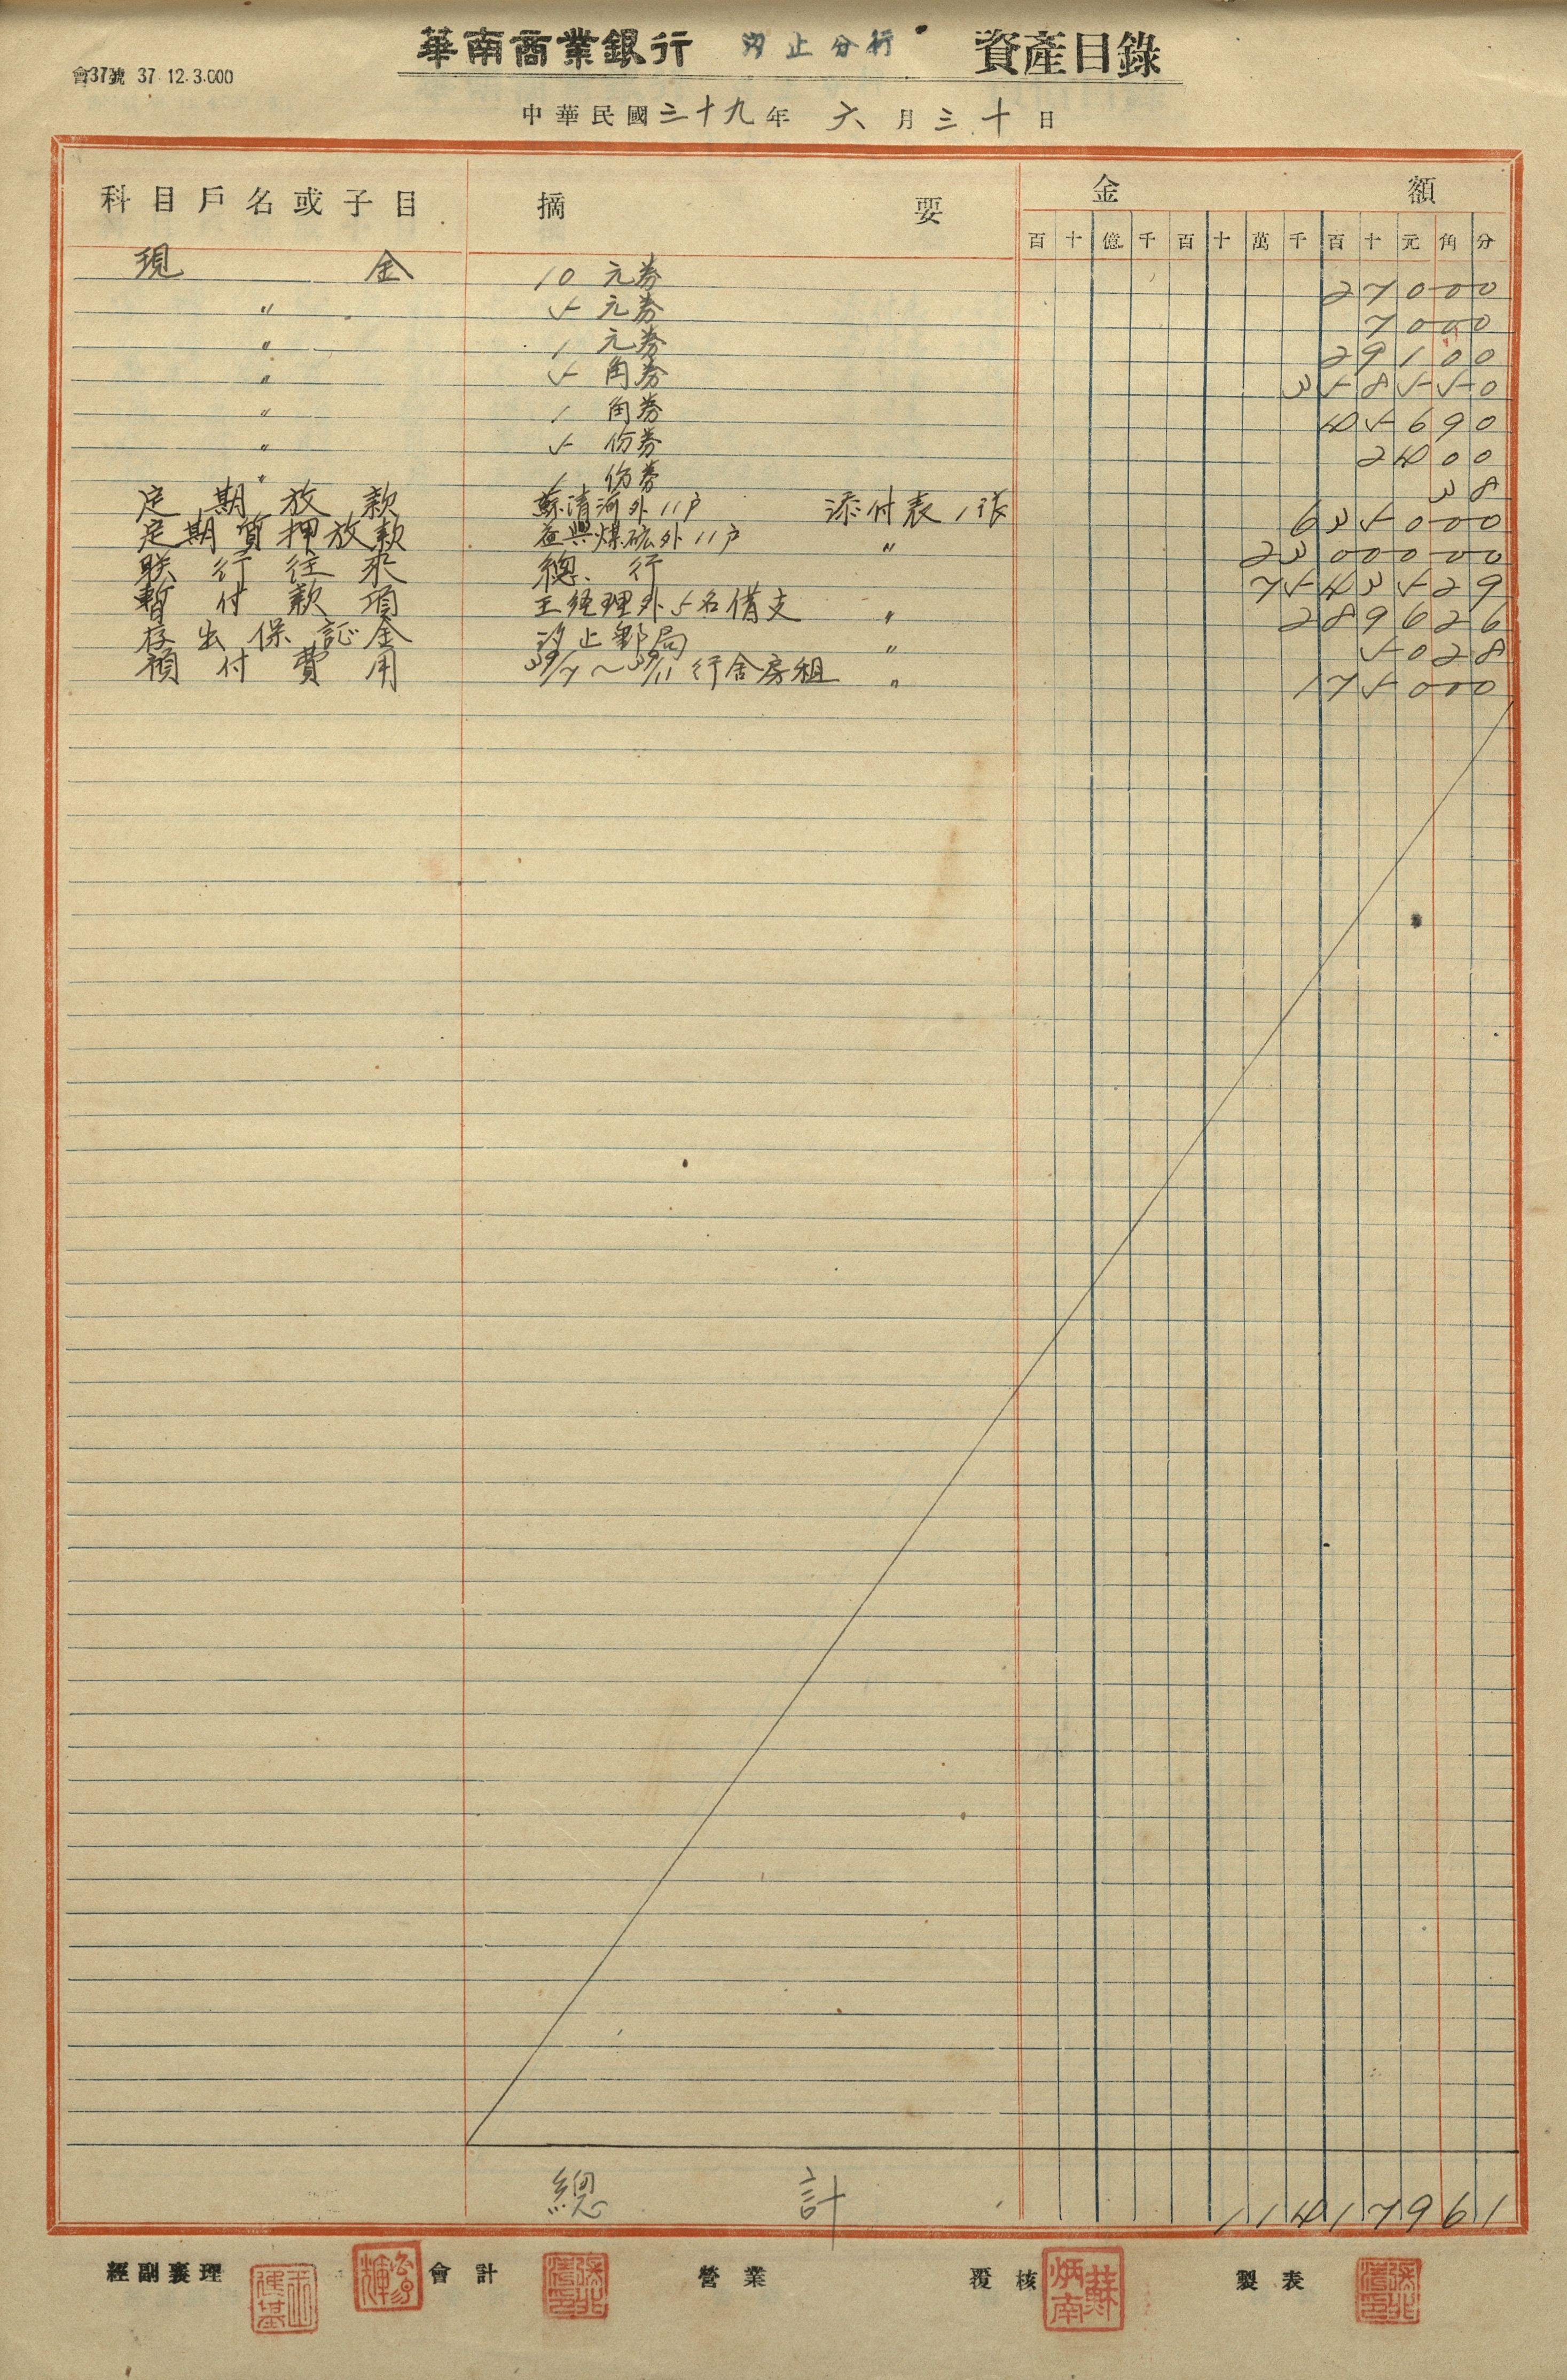 會37號 37.12.3.000
華南商業銀行 汐止分行 資產目錄
中華民國三十九年 六月三十日
科目戶名或子目 摘要 金額
百十億千百十萬千百十元角分
現金 10元券 27000
〃 5元券 7000
〃 1元券 29100
〃 5角券 358550
〃 1角券 45690
〃 5份券 2400
〃 1份券 38
定期放款 蘇清河外11戶 添付表1張 635000
定期質押放款 益興煤砿外11戶 〃 2300000
联行往來 總行 7543529
暫付款項 王経理外5名借支 〃 289626
存出保証金 汐止郵局 〃 5028
預付費用 39/7~39/11行舍房租 〃 175000
總計 11417961
經副襄理 會計 營業 覆核 蘇炳南 製表